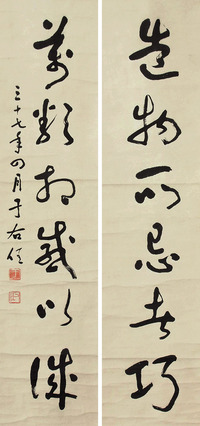 造物所忌者巧
萬類相感以誠
三十七年四月于右任